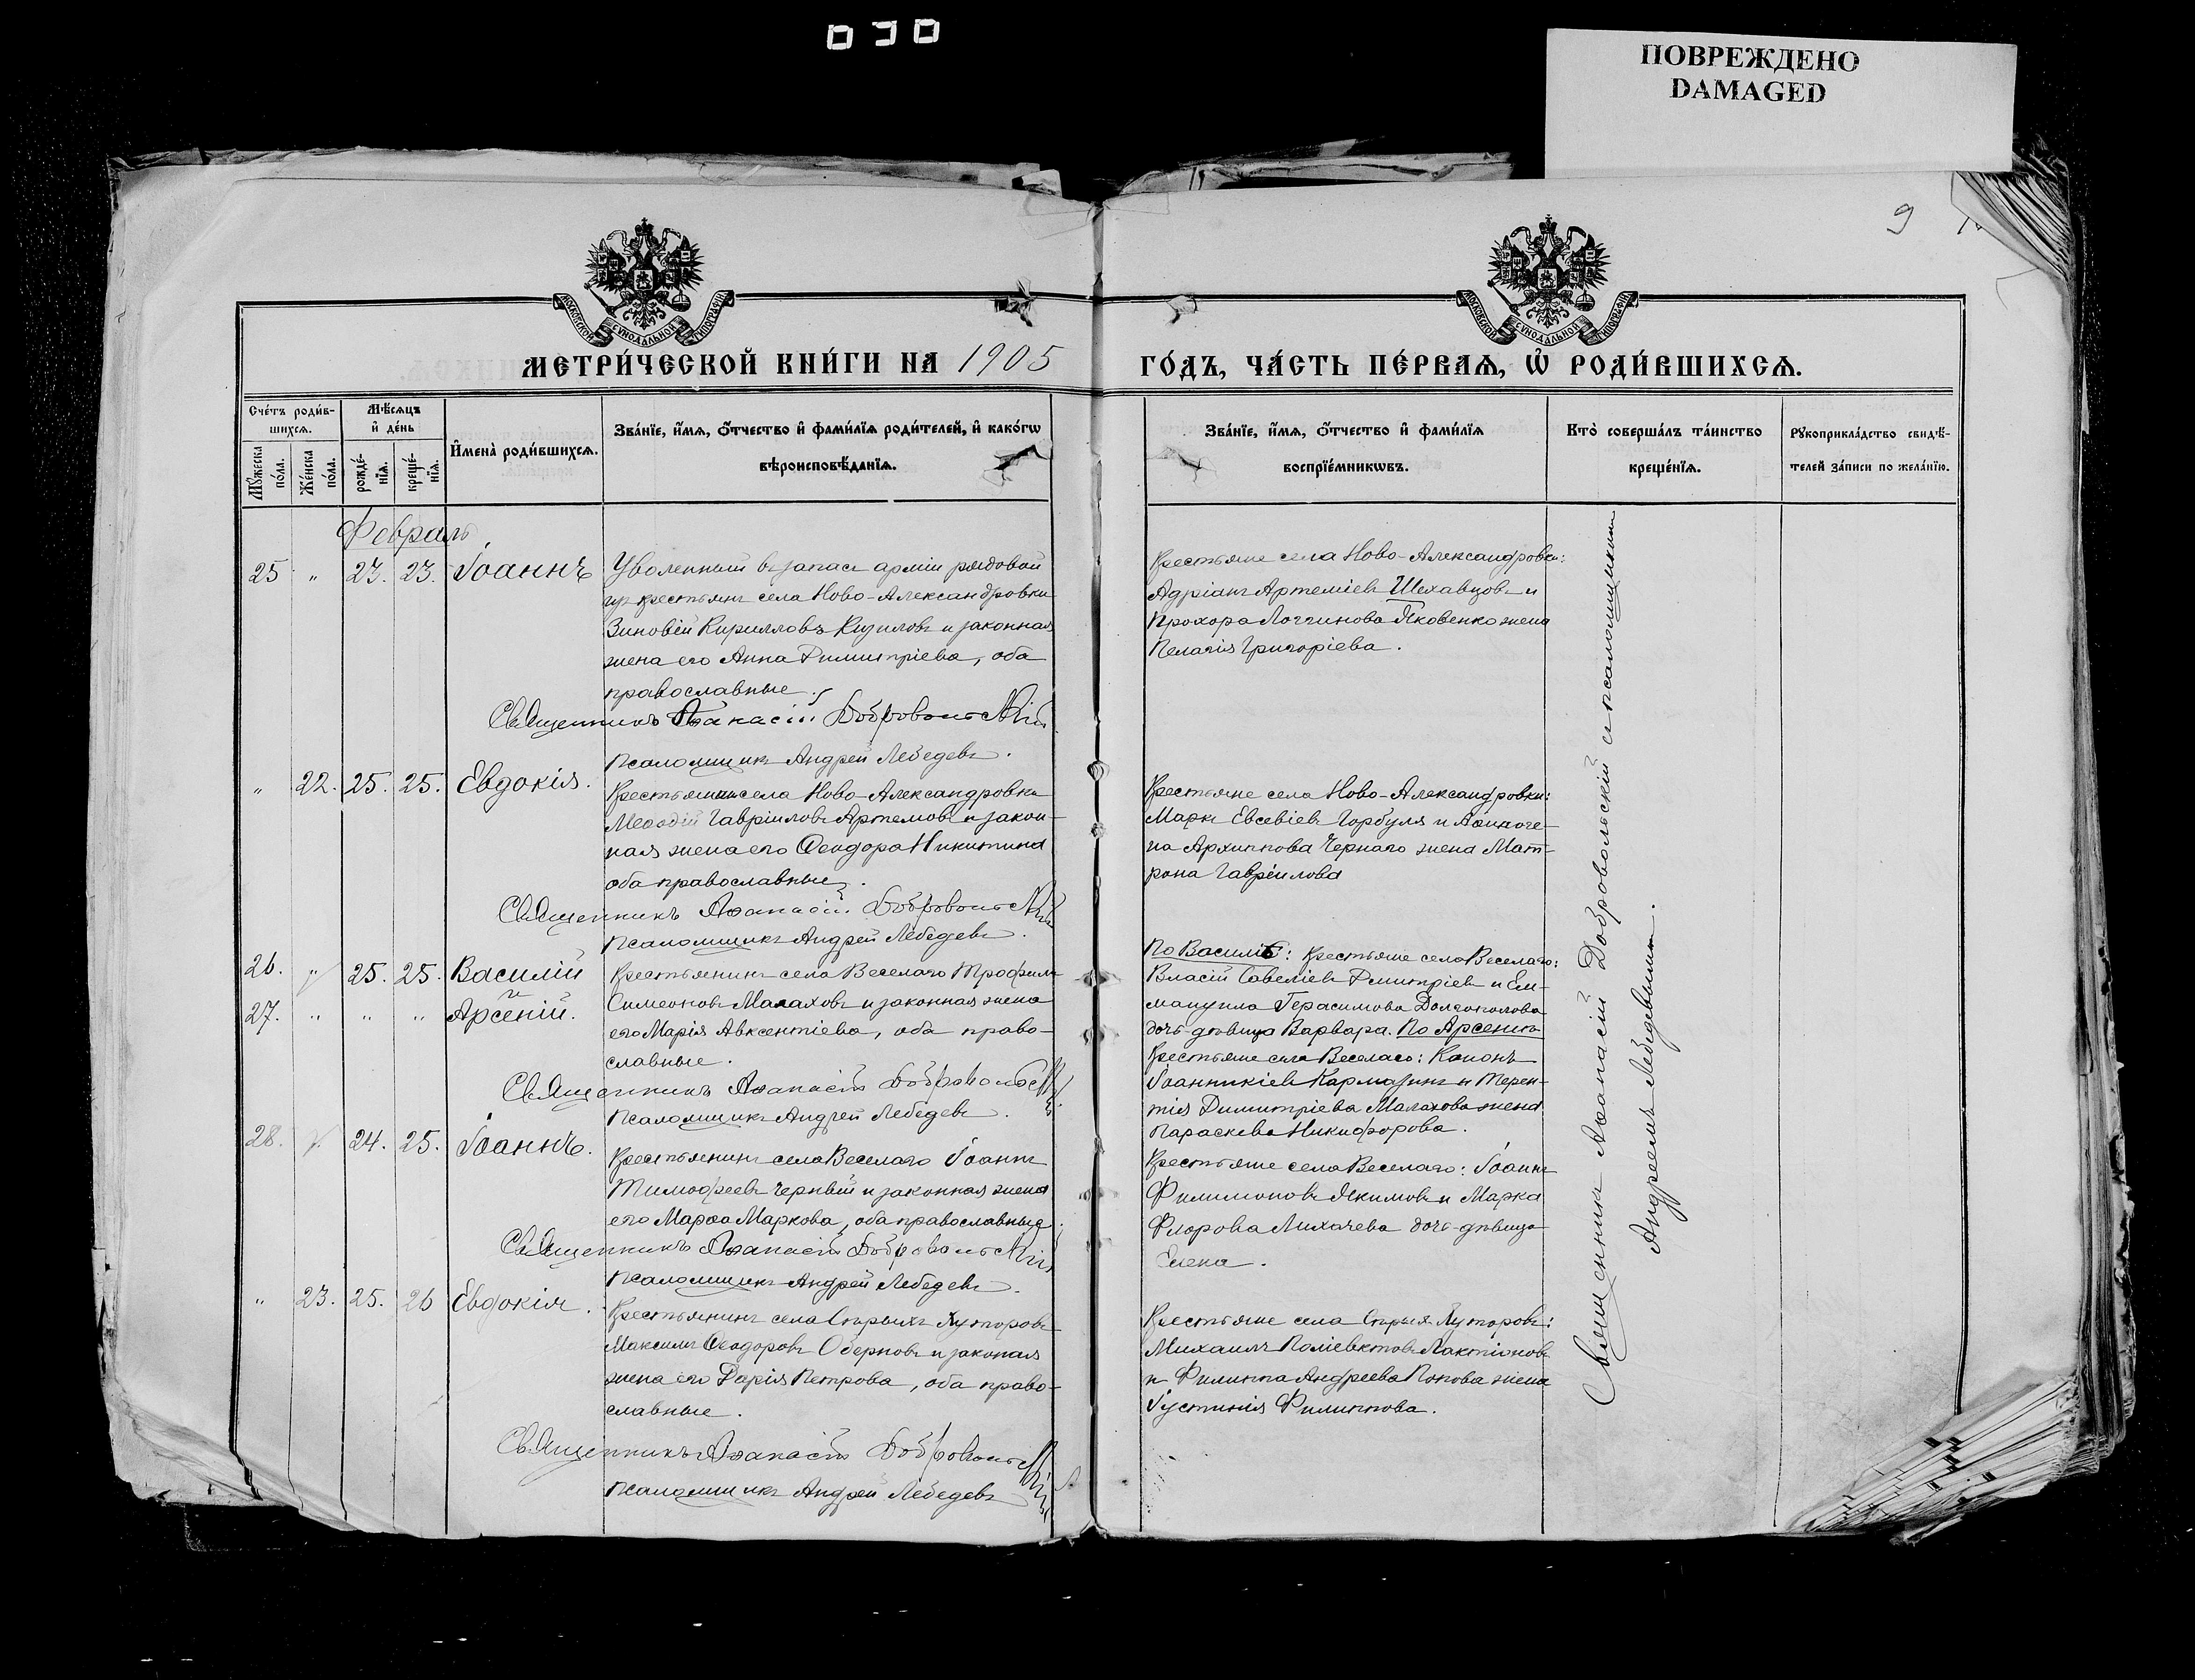 ПОВРЕЖДЕНО
DAMAGED
9
МОСКОВСКОЙ СУНОДАЛЬНОЙ ТИПОГРАФІИ
МОСКОВСКОЙ СУНОДАЛЬНОЙ ТИПОГРАФІИ
МЕТРИ́ЧЕСКОЙ КНИ́ГИ НА 1905
ГО́ДЪ, ЧА́СТЬ ПЕ́РВАѦ, Ѽ РОДИ́ВШИХСѦ.
Сче́тъ роди́в-
шихсѧ.
Мѣ́сѧцъ
и҆ де́нь
Мꙋ́жеска
по́ла.
Же́нска
по́ла.
рожде́-
нїѧ.
креще́-
нїѧ.
И҆мена̀ роди́вшихсѧ.
Зва́нїе, и҆́мѧ, ѻ҆́тчество и҆ фами́лїѧ роди́телей, и҆ како́гѡ
вѣроисповѣ́данїѧ.
Зва́нїе, и҆́мѧ, ѻ҆́тчество и҆ фами́лїѧ
воспрїе́мникѡвъ.
Кто̀ соверша́лъ та́инство
креще́нїѧ.
Рꙋкоприкла́дство свидѣ́-
телей за́писи по жела́нїю.
Февраль
25 " 23. 23. Іоаннъ
Уволенный въ запасъ арміи рядовой
изъ крестьянъ села Ново-Александровки
Зиновій Кирилловъ и законная
жена его Анна Димитріева, оба
православные.
Священникъ Аѳанасій Добровольскій
Псаломщикъ Андрей Лебедевъ.
Крестьяне села Ново-Александровки:
Адріанъ Артеміевъ Шехавцовъ и
Прохора Логгинова Яковенко жена
Пелагія Григоріева.
" 22. 25. 25. Евдокія.
села Ново-Александровки
Меѳодій Гавріиловъ Артемовъ и закон-
ная жена его Ѳеодора Никитина
оба православные.
Священникъ Аѳанасій Добровольскій
Псаломщикъ Андрей Лебедевъ.
Крестьяне села Ново-Александровки:
Маркъ Евсевіевъ Горбуля и Аѳиноге-
на Архиппова Чернаго жена Мат-
рона Гавріилова
26. " 25. 25. Василій
27. " " " Арсеній.
Крестьянинъ села Веселаго Трофимъ
Симеоновъ Малаховъ и законная жена
его Марія Авксентіева, оба право-
славные.
Священникъ Аѳанасій Добровольскій
Псаломщикъ Андрей Лебедевъ.
По Василіѣ: Крестьяне села Веселаго:
Власій Савеліевъ Дмитріевъ и Ем-
мануила Герасимова Долгополова
дочь-дѣвица Варвара. По Арсеніи
Крестьяне села Веселаго: Кононъ
Іоанникіевъ Кармазинъ и Терен-
тія Димитріева Малахова жена
Параскева Никифорова.
28. 24. 25. Іоаннъ.
Крестьянинъ села Веселаго Іоаннъ
Тимоѳеевъ Черный и законная жена
его Марѳа Маркова, оба православные.
Священникъ Аѳанасій Добровольскій
Псаломщикъ Андрей Лебедевъ.
Крестьяне села Веселаго: Іоаннъ
Филимоновъ Якимовъ и Марка
Флорова Лихачева дочь-дѣвица
Елена.
" 23. 25. 26 Евдокія.
Крестьянинъ села Старыхъ Хуторовъ
Максимъ Ѳеодоровъ и законая
жена его Дарія Петрова, оба право-
славные.
Священникъ Аѳанасій Добровольскій
Псаломщикъ Андрей Лебедевъ
Крестьяне села Хуторовъ:
Михаилъ Поліевктовъ Лактіоновъ
и Филиппа Андреева Попова жена
Іустинія Филиппова.
Священникъ Аѳанасій Добровольскій съ псаломщикомъ
Андреемъ Лебедевымъ.